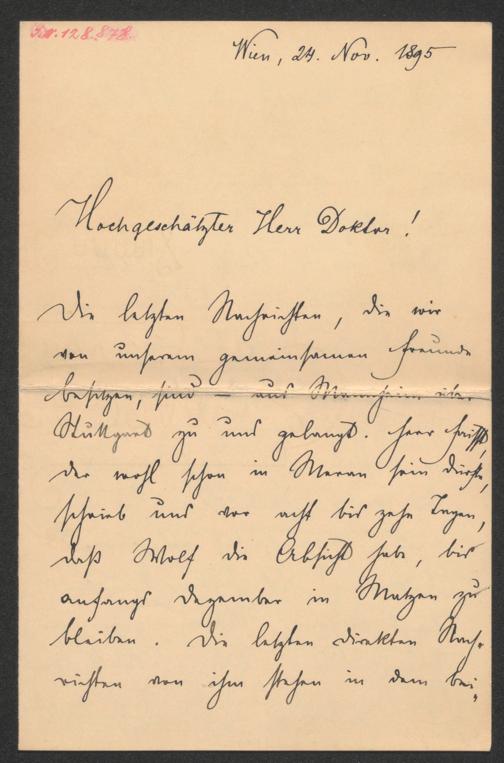 I.N. 128.878
Wien, 24. Nov. 1895
Hochgeschätzter Herr Doktor!
Die letzten Nachrichten, die wir
von unserem gemeinsamen Freunde
besitzen, sind – aus Mannheim über
Stuttgart zu uns gelangt. Herr Faißt,
der wohl schon in Meran sein dürfte,
schrieb uns vor acht bis zehn Tagen,
daß Wolf die Absicht habe, bis
anfangs Dezember in Matzen zu
bleiben. Die letzten direkten Nach-
richten von ihm stehen in dem bei-